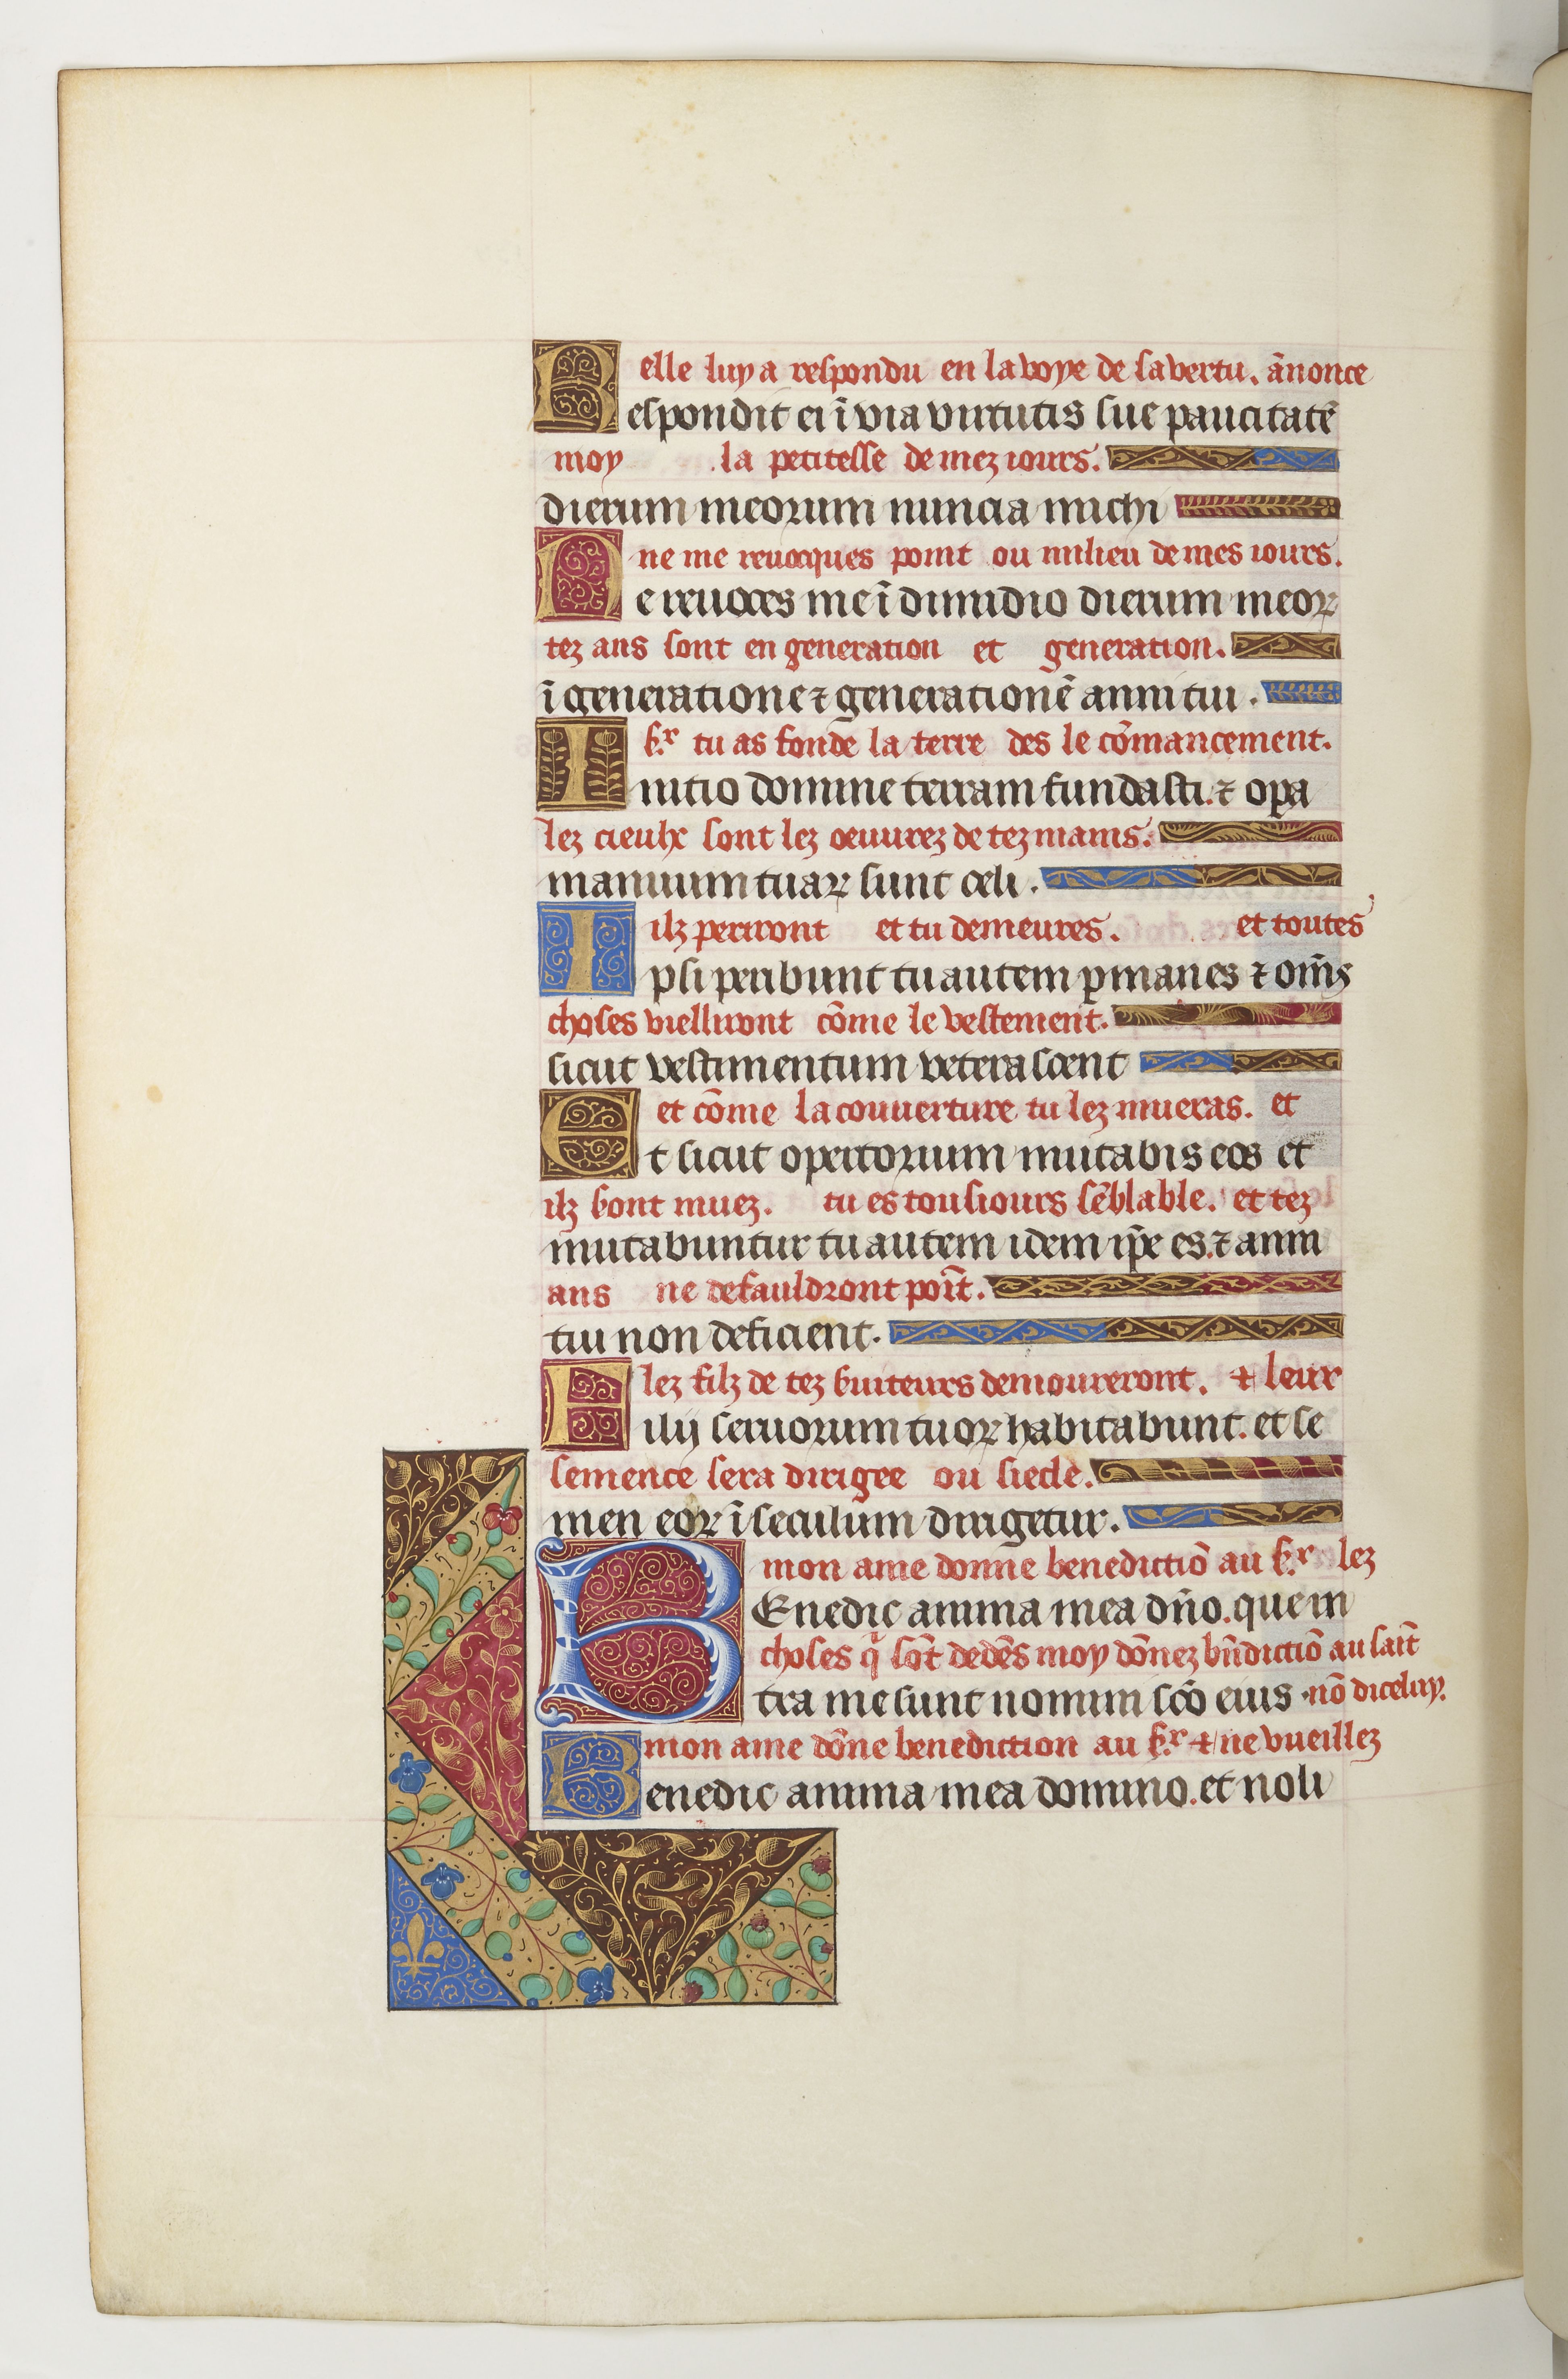 elle luy a respondu en la voye de sa vertu. ãnonce
Respondit ei ĩ via virtutis sue paucitatẽ
moy la petitesse de mez iours.
dierum meorum nuncia michi
ne me reuocques point ou milieu de mes iours.
Ne reuoces me ĩ dimidio dierum meoꝝ
tez ans sont en generation et generation.
ĩ generatione ⁊ generationẽ anni tui.
sʳ tu as fonde la terre des le cõmancement.
Initio domine terram fundasti. ⁊ opa
lez cieulx sont lez oeuurez de tez mains.
manuum tuaꝝ sunt celi.
ilz periront et tu demeures. et toutes
Ipsi peribunt tu autem ꝑmanes ⁊ om̃s
choses vielliront cõme le vestement.
sicut vestimentum veterascent
et cõme la couuerture tu lez mueras. et
Et sicut opertorium mutabis eos et
ilz sont muez. tu es tousiours sẽblable. et tez
mutabuntur tu autem idem ip̃e es. ⁊ anni
ans ne defauldront poĩt.
tui non deficient.
lez filz de tez seruiteurs demoureront. ⁊ leur
Filij seruorum tuoꝝ habitabunt. et se
semence sera dirigee ou siecle.
men eoꝝ ĩ seculum dirigetur.
mon ame donne benedictiõ au sʳ lez
BEnedic anima mea dño. que in
choses q̃ sõt dedẽs moy dõnez bñdictiõ au saĩt
tra me sunt nomini scõ eius nõ diceluy.
mon ame dõne benediction au sʳ ⁊ ne vueillez
Benedic anima mea domino. et noli